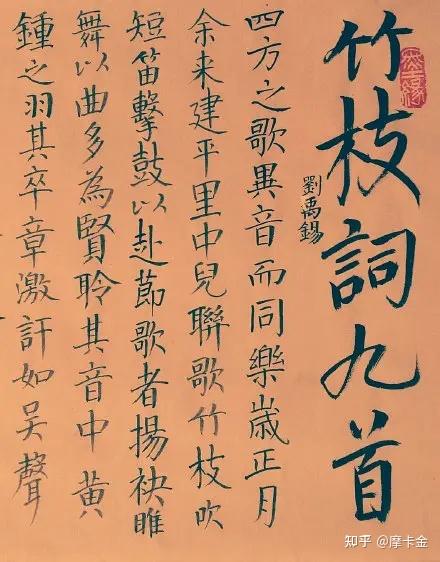 竹枝詞九首
劉禹錫
四方之歌異音而同樂歲正月
余来建平里中兒聯歌竹枝吹
短笛擊鼓以赴節歌者揚袂睢
舞以曲多為賢聆其音中黄
鍾之羽其卒章激訐如吴聲
知乎 @摩卡金